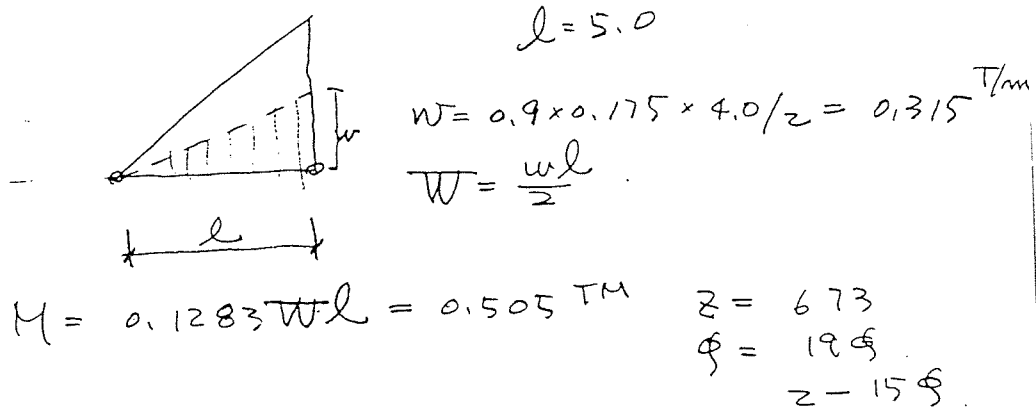 l = 5.0
w = 0.9 × 0.175 × 4.0/2 = 0.315 T/m
w
W = wl/2
l
M = 0.1283 Wl = 0.505 TM
Z = 673
φ = 19φ
2 - 15φ